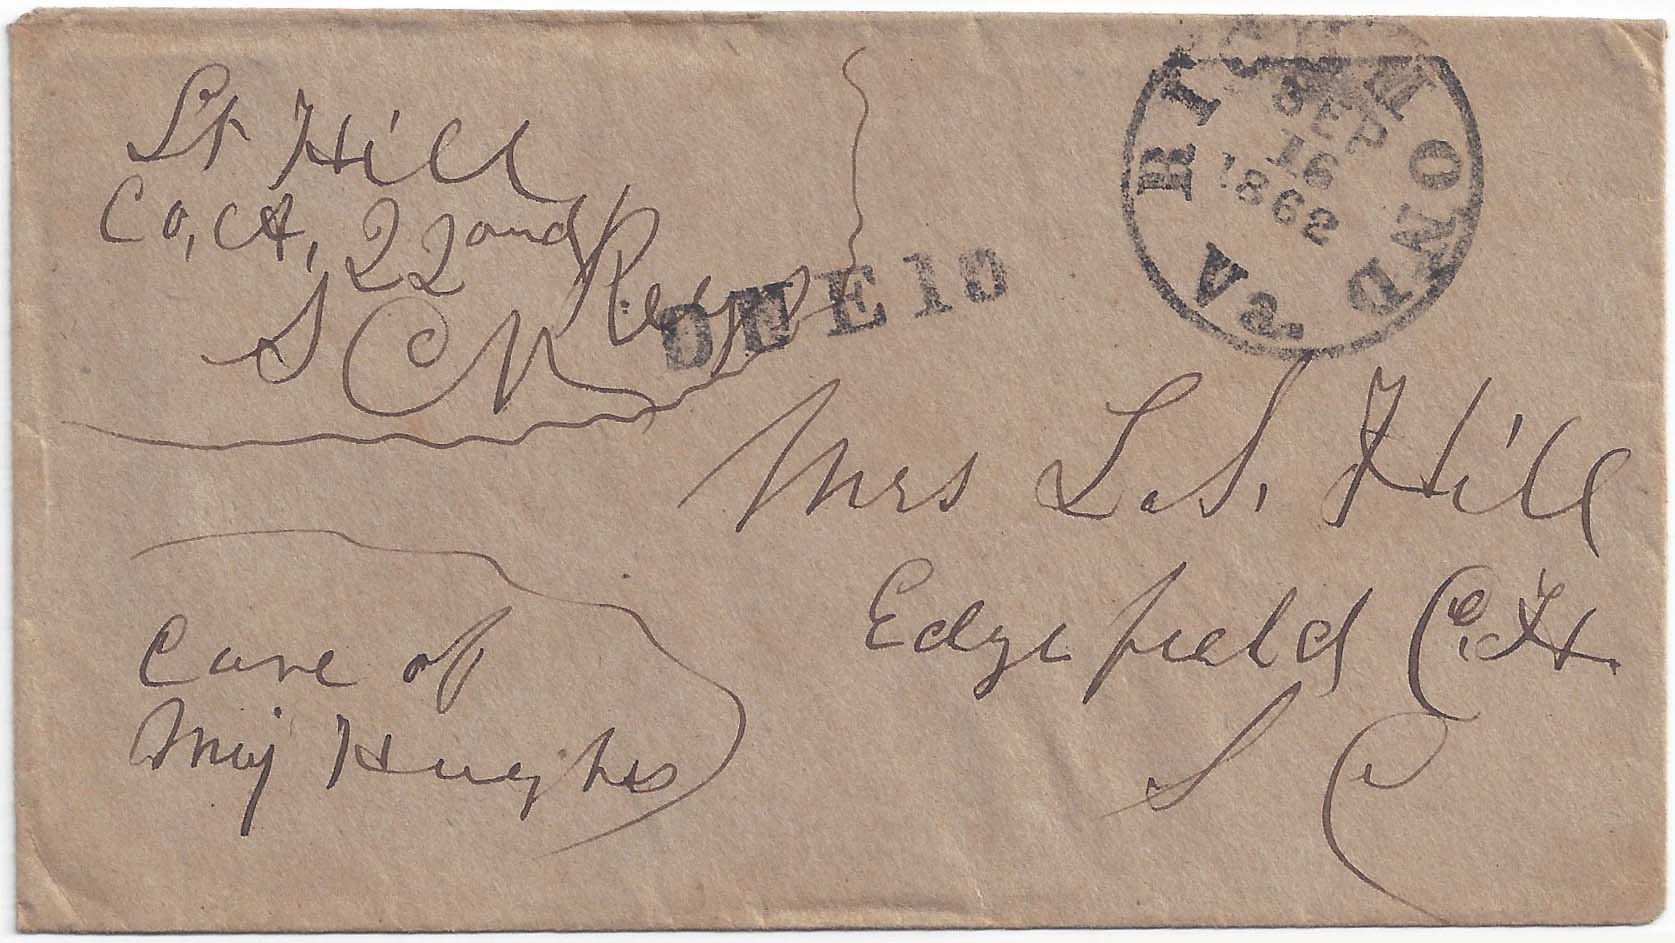 Lt Hill
Co, A, 22and Regt
S C V
DUE 10
RICHMOND
SEP
16
1862
Va.
Mrs L. S. Hill
Edgefield C. H.
S C
Care of
Maj Hughes